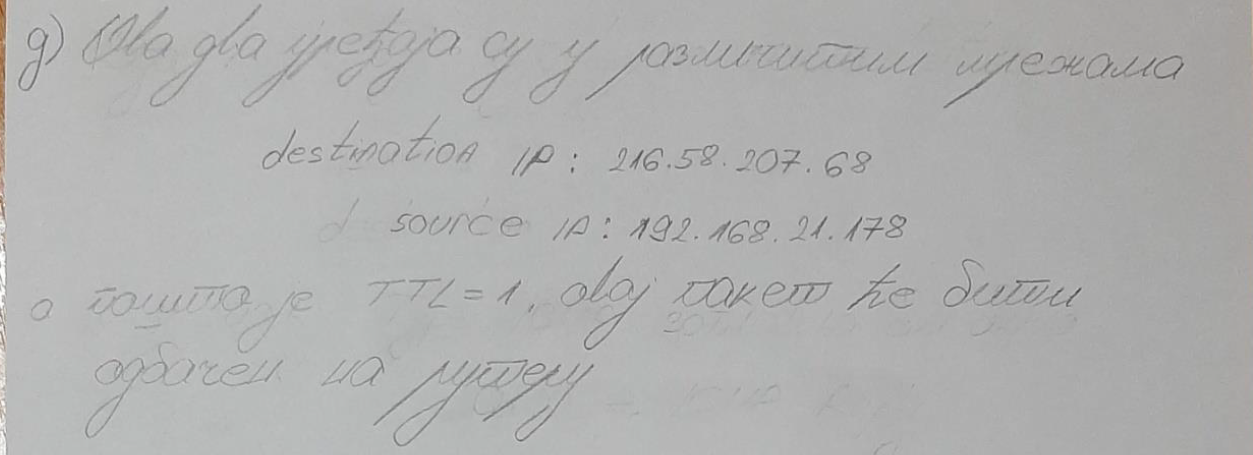 д) Ова два уређаја су у различитим мрежама
destination IP: 216.58.207.68
source IP: 192.168.21.178
а пошто је TTL=1, овај пакет ће бити
одбачен на рутеру